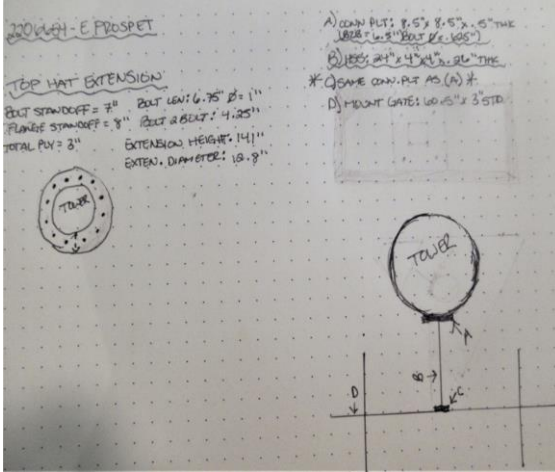 E PROSPET
TOP HAT EXTENSION
BOLT STANDOFF = 7" BOLT LEN: 6.75" Ø = 1"
FLANGE STANDOFF = 8" BOLT 2 BOLT: 4.25"
TOTAL PLY = 3" EXTENSION HEIGHT: 141"
EXTEN. DIAMETER: 12.8"
TOWER
A) CONN PLT: 8.5" x 8.5" x .5" THK
(B2B = 6.5" BOLT Ø = .625")
B) HSS: 24" x 4" x 4" x .26" THK
* C) SAME CONN. PLT AS (A) *
D) MOUNT GATE: 60.5" x 3" STD
TOWER
A
B
C
D